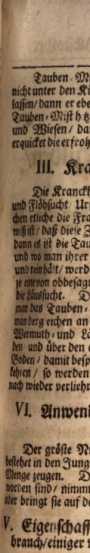 Tauben-M
nicht unter den Ki
lassen/ dann er ebe
Tauben-Mist h tz
und Wiesen/ da
erquicket die erfrohr
III. Kra
Die Kranckh
und Flöhsucht Ur
chen etliche die Fra
daß diese Z
dann es ist die Tau
und wo man ihrer
und reinhält/ werd
je mit von obbesagt
die läussucht. D
man das Tauben-
eichen an
Wermuth- und Lä
den und über den
Boden/ damit besp
kehren/ so werden
nach wieder verliehr
VI. Anwend
Der gröste N
bestehet in den Jung
Menge zeugen. D
worden sind/ nimm
bringt sie auf de
V. Eigenschaff
brauch/einiger